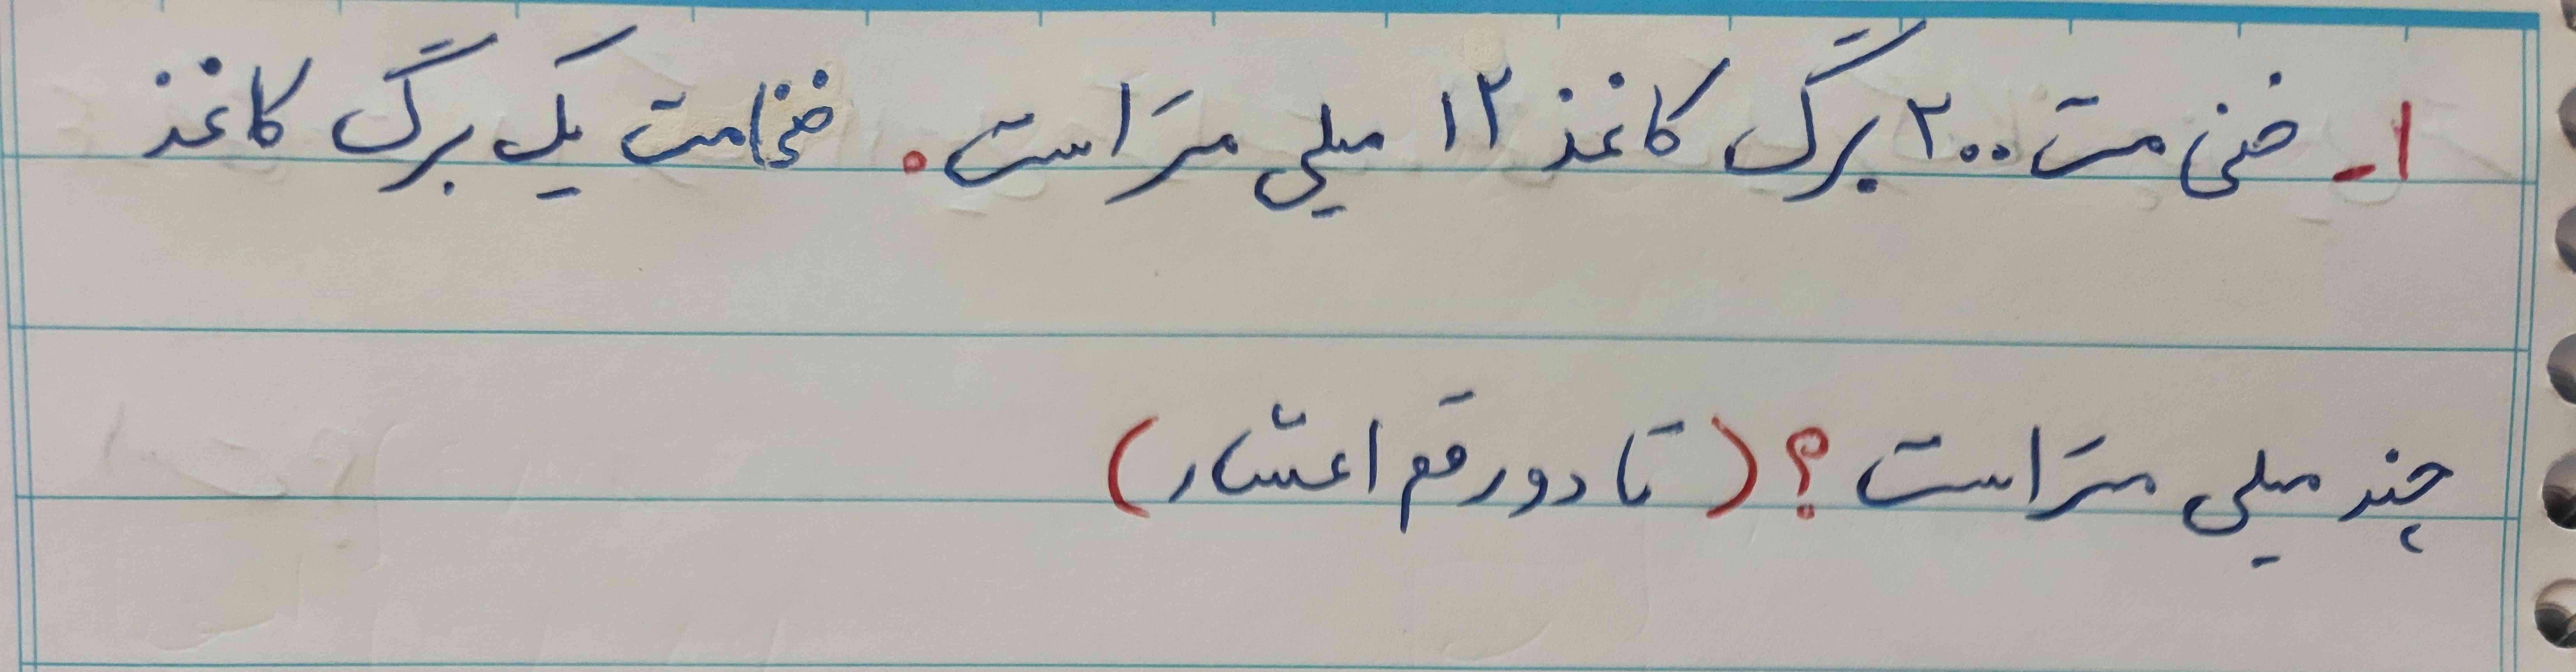 ۱- ضخامت ۲۰۰ برگ کاغذ ۱۲ میلی متر است. ضخامت یک برگ کاغذ
چند میلی متر است؟ (تا دو رقم اعشار)